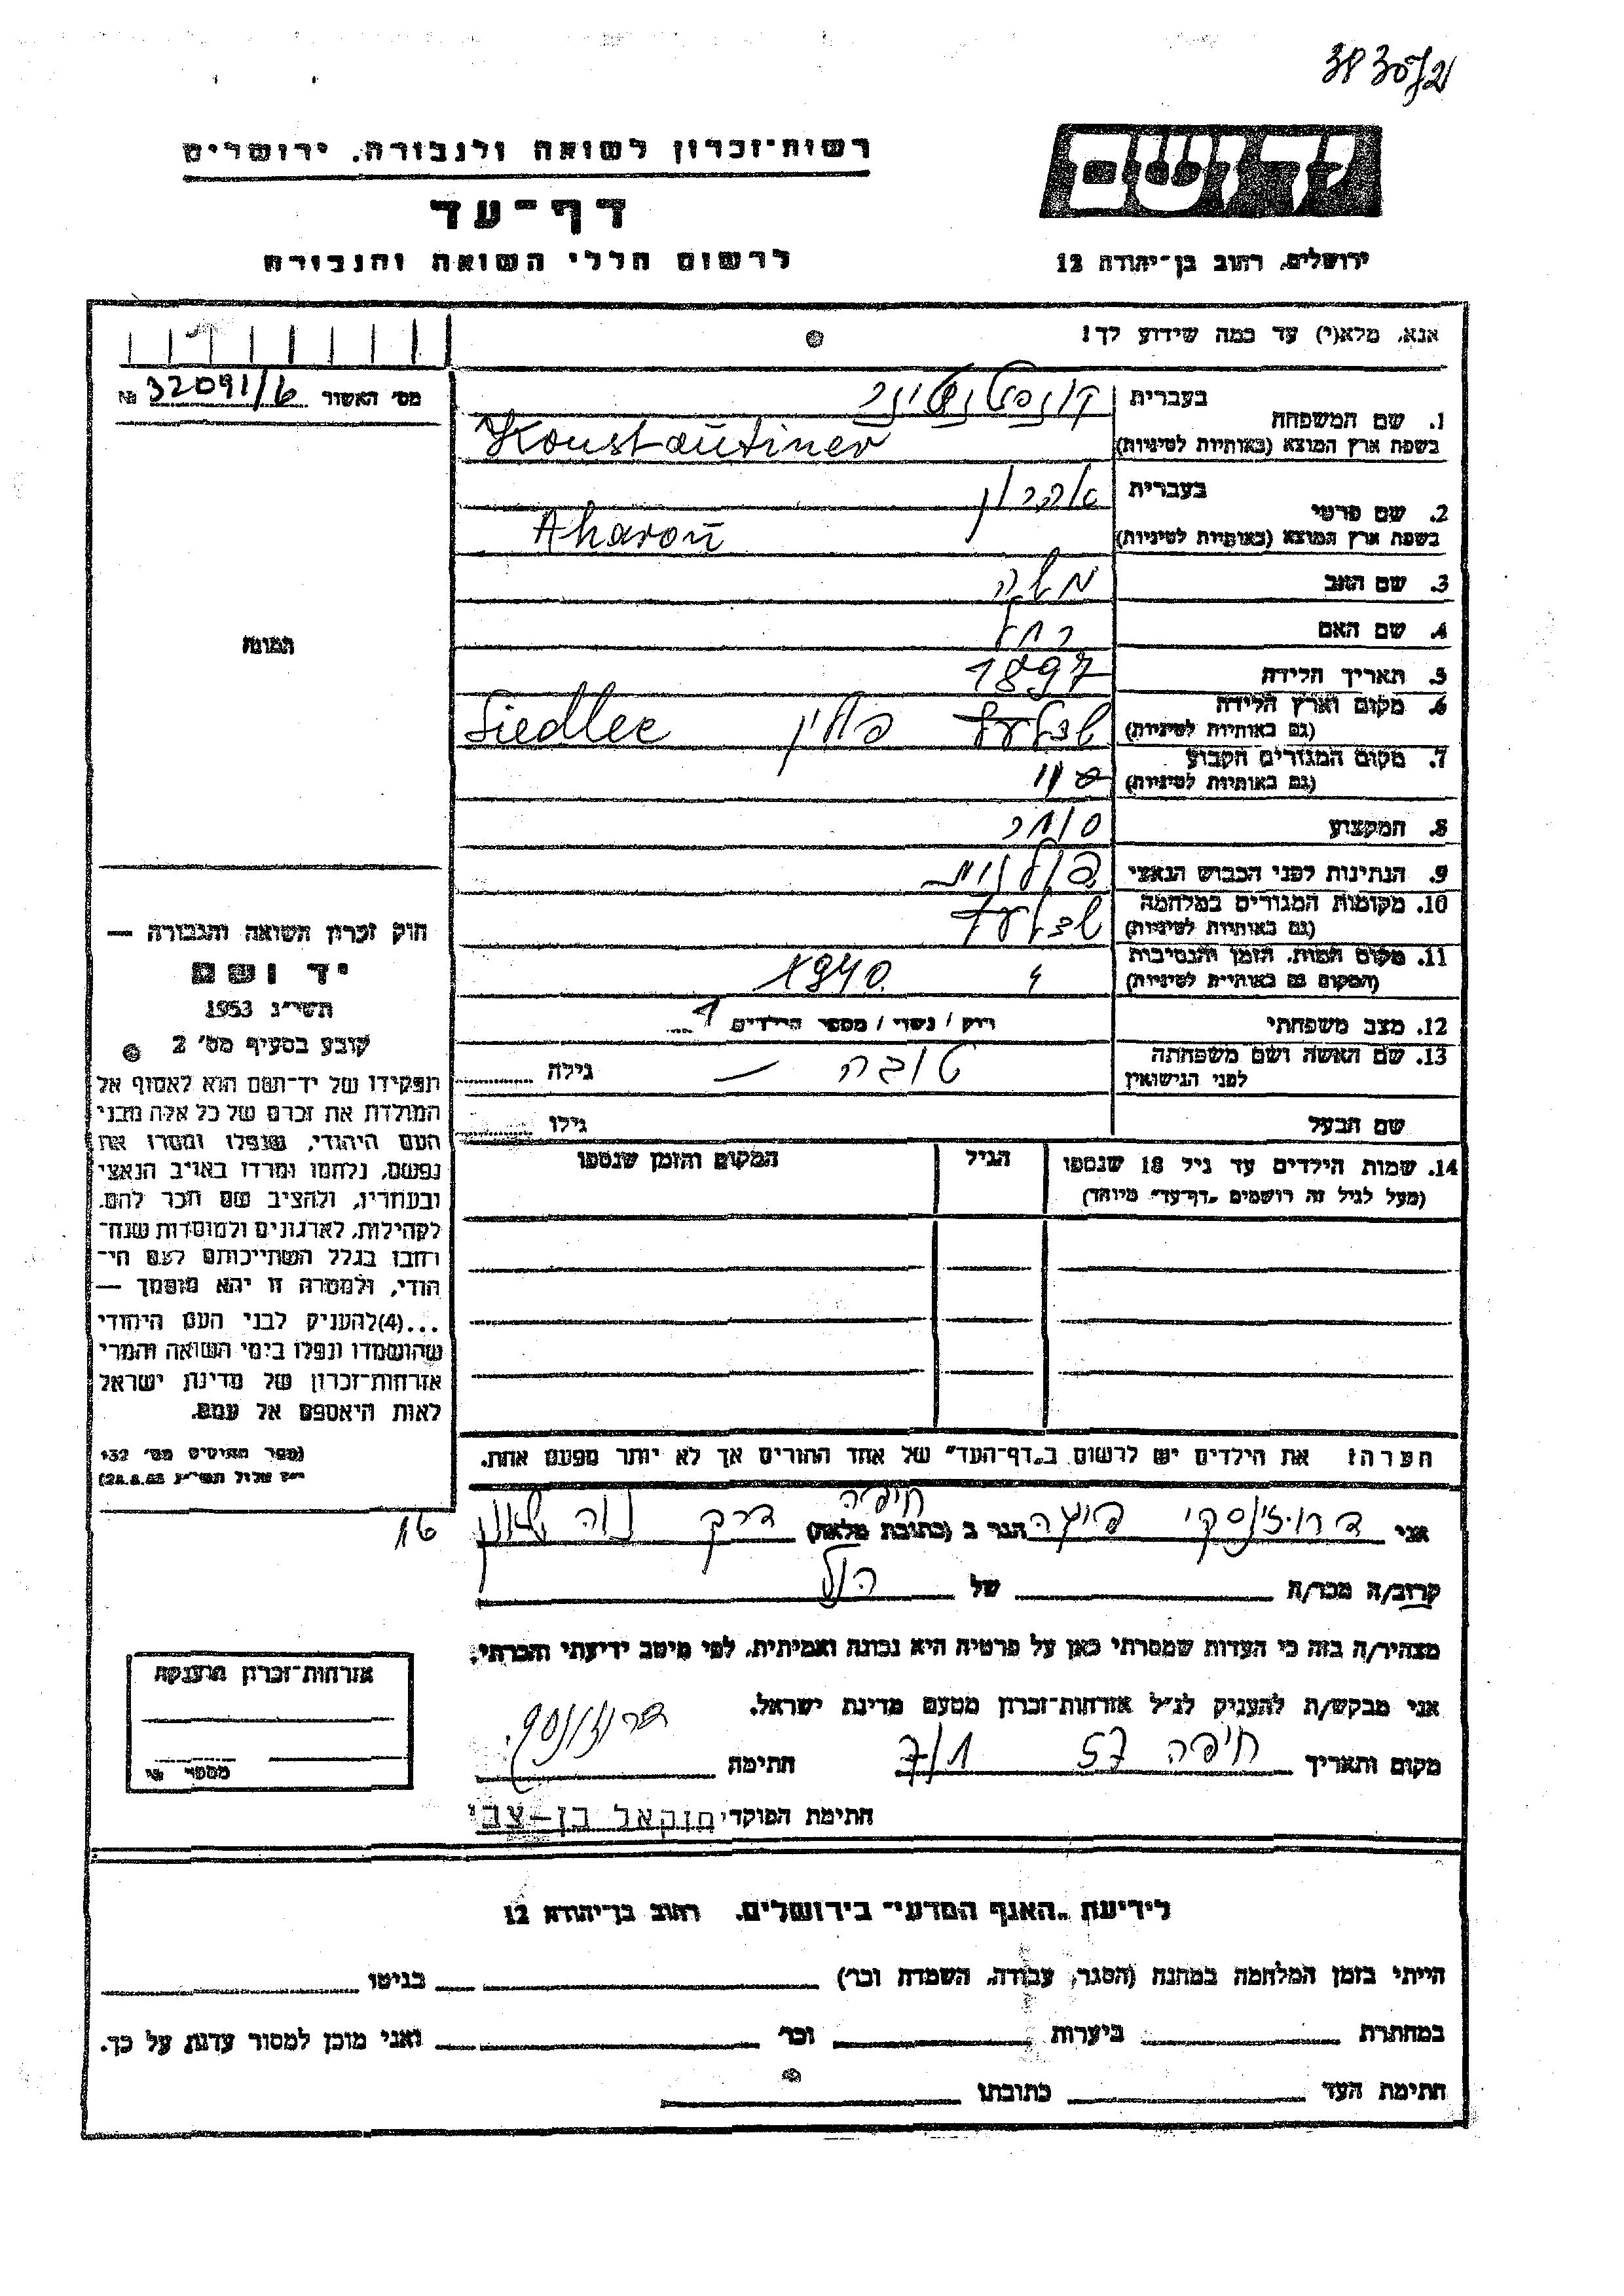 3830/21
רשות־זכרון לשואה ולגבורה, ירושלים
יד ושם
דף־עד
לרשום חללי השואה והגבורה
ירושלים, רחוב בן־יהודה 12
אנא, מלא(י) עד כמה שידוע לך!
מס׳ האשור 32091/6 №
תמונה
1. שם המשפחה בעברית קונסטנטינר
בשפת ארץ המוצא (באותיות לטיניות) Konstantiner
2. שם פרטי בעברית אהרון
בשפת ארץ המוצא (באותיות לטיניות) Aharon
3. שם האב משה
4. שם האם רחל
5. תאריך הלידה 1897
6. מקום וארץ הלידה שצלעץ פולין Siedlee
(גם באותיות לטיניות)
7. מקום המגורים הקבוע
(גם באותיות לטיניות)
8. המקצוע סוחר
9. הנתינות לפני הכבוש הנאצי פולנית
10. מקומות המגורים במלחמה
(גם באותיות לטיניות)
11. מקום המות, הזמן והנסיבות 1940
(המקום גם באותיות לטיניות)
12. מצב משפחתי רווק / נשוי / מספר הילדים 1
13. שם האשה ושם משפחתה טובה — גילה
לפני הנישואין
שם הבעל גילו
14. שמות הילדים עד גיל 18 שנספו הגיל המקום והזמן שנספו
(מעל לגיל זה רושמים „דף־עד” מיוחד)
הערה: את הילדים יש לרשום ב„דף־העד” של אחד ההורים אך לא יותר מפעם אחת.
חוק זכרון השואה והגבורה —
יד ושם
תשי״ג 1953
קובע בסעיף מס׳ 2
תפקידו של יד־ושם הוא לאסוף אל
המולדת את זכרם של כל אלה מבני
העם היהודי, שנפלו ומסרו את
נפשם, נלחמו ומרדו באויב הנאצי
ובעוזריו, ולהציב שם וזכר להם,
לקהילות, לארגונים ולמוסדות שנח־
רחבו בגלל השתייכותם לעם הי־
הודי, ולמטרה זו יהא מוסמך —
...(4)להעניק לבני העם היהודי
שהושמדו ונפלו בימי השואה והמרי
אזרחות־זכרון של מדינת ישראל
לאות היאספם אל עמם.
(ספר החוקים מס׳ 132
אני הגר ב (כתובת מלאה) חיפה דרך נוה שאנן
קרוב/ה מכר/ה של הנ״ל
מצהיר/ה בזה כי העדות שמסרתי כאן על פרטיה היא נכונה ואמיתית, לפי מיטב ידיעתי והכרתי.
אני מבקש/ת להעניק לנ״ל אזרחות־זכרון מטעם מדינת ישראל.
מקום ותאריך חיפה 57 7/1 חתימה
חתימת הפוקד יחזקאל בן-צבי
אזרחות־זכרון הוענקה
מספר
לידיעת „האגף המדעי” בירושלים, רחוב בן־יהודה 12
הייתי בזמן המלחמה במחנה (הסגר, עבודה, השמדה וכו׳) בגיטו
במחתרת ביערות וכו׳ ואני מוכן למסור עדות על כך.
חתימת העד כתובתו